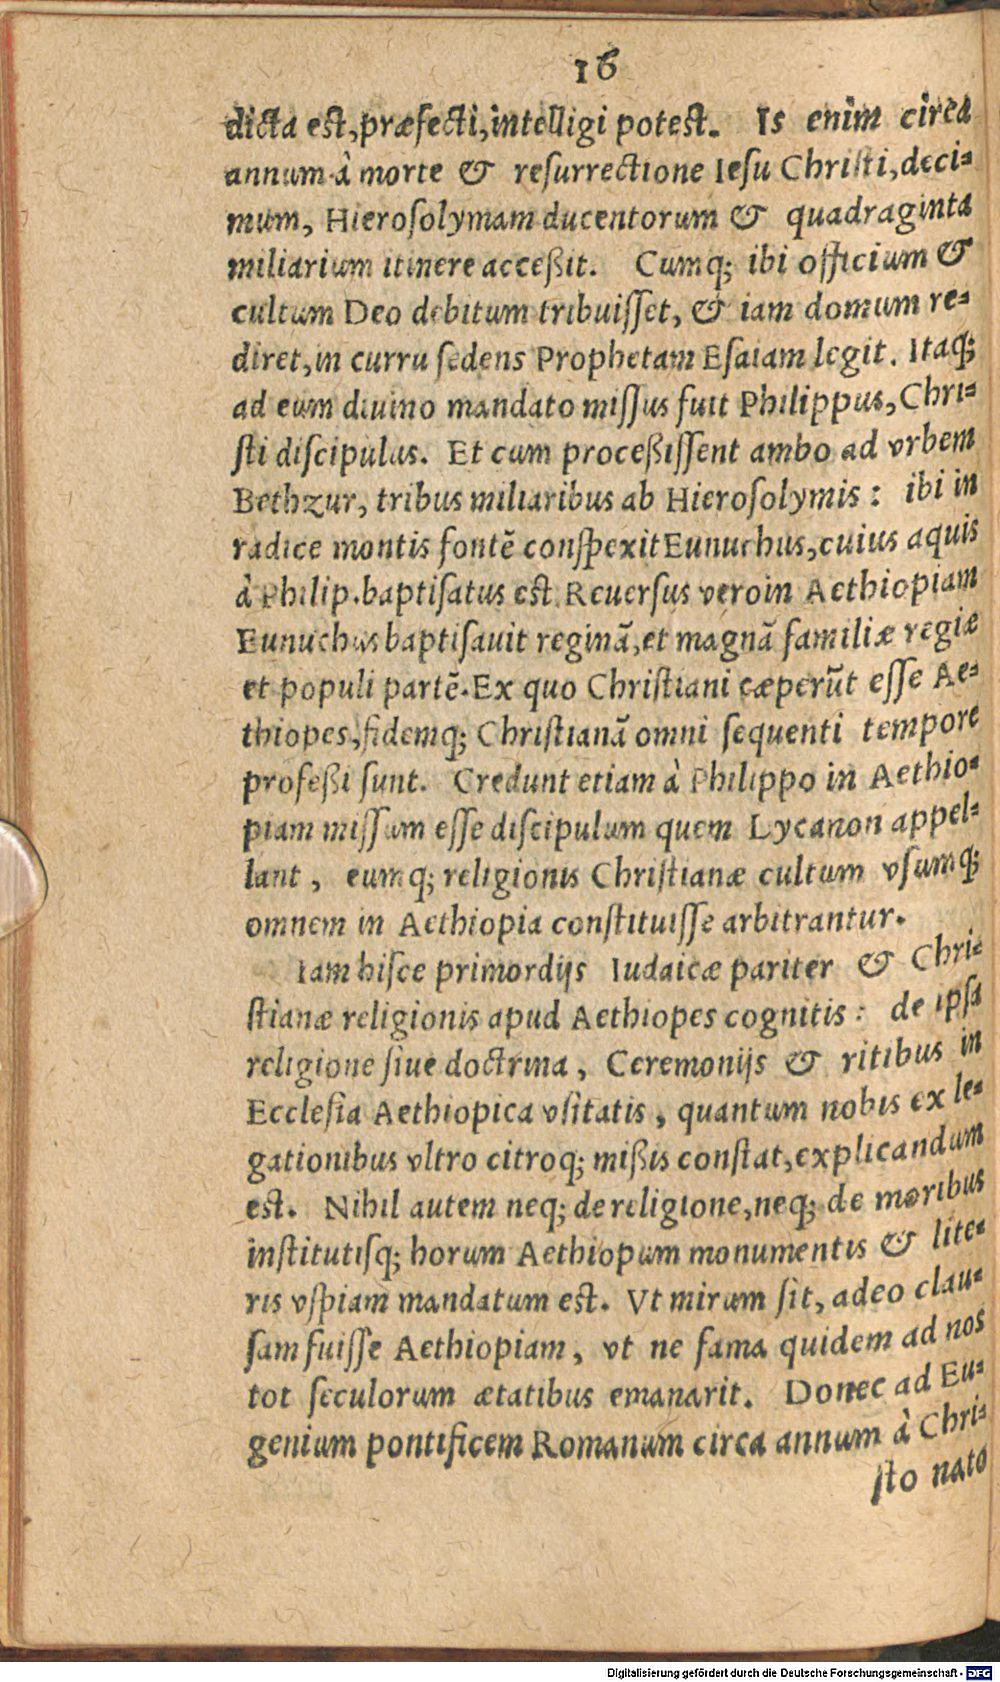 16
dicta est, præfecti, intelligi potest. Is enim circa
annum à morte & resurrectione Iesu Christi, deci-
mum, Hierosolymam ducentorum & quadraginta
miliarium itinere acceßit. Cumq; ibi officium &
cultum Deo debitum tribuisset, & iam domum re-
diret, in curru sedens Prophetam Esaiam legit. Itaq;
ad eum diuino mandato missus fuit Philippus, Chri-
sti discipulus. Et cum proceßissent ambo ad vrbem
Bethzur, tribus miliaribus ab Hierosolymis: ibi in
radice montis fontē conspexit Eunuchus, cuius aquis
à Philip. baptisatus est. Reuersus vero in Aethiopiam
Eunuchus baptisauit reginā, et magnā familiæ regiæ
et populi partē. Ex quo Christiani cæperūt esse Ae-
thiopes, fidemq; Christianā omni sequenti tempore
profeßi sunt. Credunt etiam à Philippo in Aethio-
piam missum esse discipulum quem Lycanon appel-
lant, eumq; religionis Christianæ cultum vsumq;
omnem in Aethiopia constituisse arbitrantur.
Iam hisce primordijs Iudaicæ pariter & Chri-
stianæ religionis apud Aethiopes cognitis: de ipsa
religione siue doctrina, Ceremonijs & ritibus in
Ecclesia Aethiopica vsitatis, quantum nobis ex le-
gationibus vltro citroq; mißis constat, explicandum
est. Nihil autem neq; de religione, neq; de moribus
institutisq; horum Aethiopum monumentis & lite-
ris vspiam mandatum est. Vt mirum sit, adeo clau-
sam fuisse Aethiopiam, vt ne fama quidem ad nos
tot seculorum ætatibus emanarit. Donec ad Eu-
genium pontificem Romanum circa annum à Chri-
sto nato
Digitalisierung gefördert durch die Deutsche Forschungsgemeinschaft - DFG